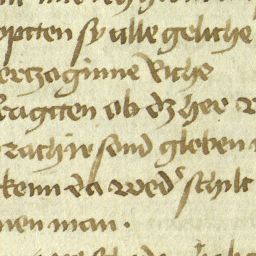 optten sy alle geliche
ertzoginne Riche
ragtten ob dz her
rach ir sond globen
kein da wed' schilt
nen man .